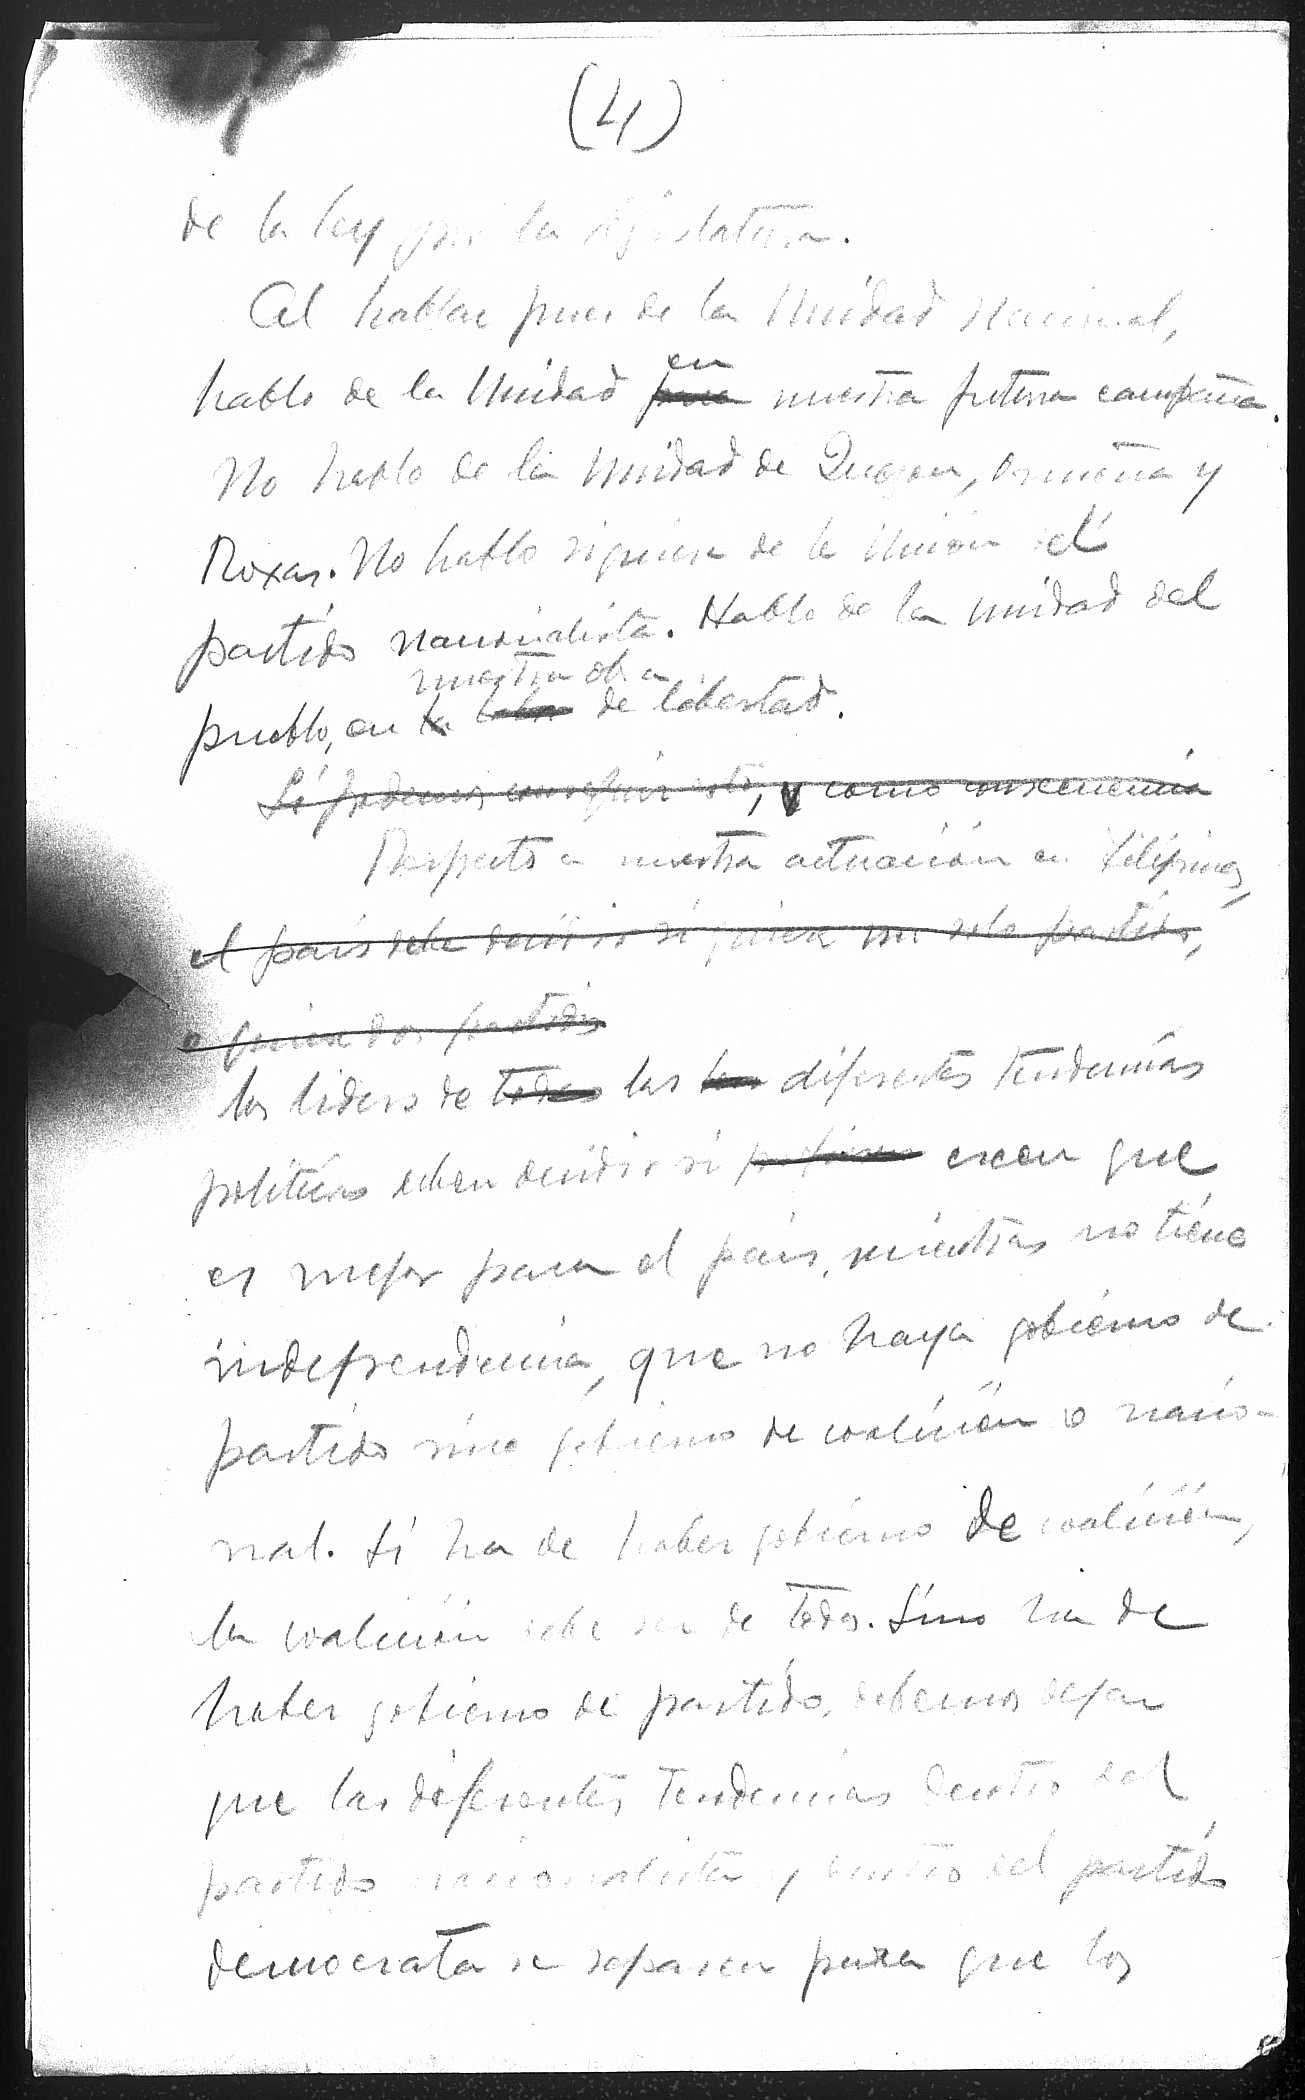 (4)
de la ley por la legislatura.
Al hablar pues de la Unidad Nacional,
en
hablo de la Unidad para nuestra futura campaña.
No hablo de la Unidad de Quezon, Osmeña y
Roxas. No hablo siquiera de la Unión del
partido nacionalista. Hablo de la unidad del
nuestra obra
pueblo, en la de libertad.
Si podemos conseguir esto, y como consecuencia
Respecto a nuestra actuación en Filipinas,
el pais debe decidir si quiere un solo partido,
o quiere dos partidos
los liders de todas las los diferentes tendencias
politicas deben decidir si prefieren creen que
es mejor para el pais, mientras no tiene
independencia, que no haya gobierno de
partido sino gobierno de coalición o nacio-
nal. Si ha de haber gobierno de coalición,
la coalición debe ser de todos. Sino ha de
haber gobierno de partido, debemos dejar
que las diferentes tendencias dentro del
partido nacionalista y dentro del partido
democrata se separen para que los